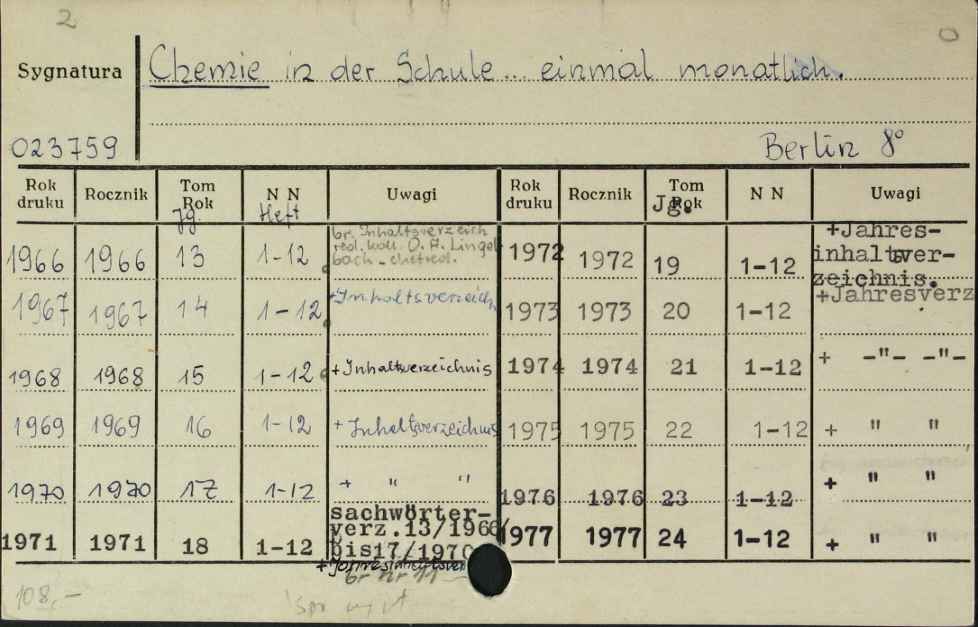 2
0
Sygnatura
Chemie in der Schule .. einmal monatlich.
023759
Berlin 8°
Rok druku Rocznik Tom Rok N N Uwagi Rok druku Rocznik Tom Rok N N Uwagi
Jg. Heft Jg.
1966 1966 13 1-12 br. Inhaltsverzeich
red. koll. O. A. Lingel
bach - chefred.
1967 1967 14 1-12 +Inhaltsverzeich
1968 1968 15 1-12 +Inhaltverzeichnis
1969 1969 16 1-12 + Inhaltsverzeichnis
1970 1970 17 1-12 + " "
1971 1971 18 1-12 sachwörter-
verz.13/1966/
bis17/1970
+Jahresinhaltsver
br nr 11
1972 1972 19 1-12 +Jahres-
inhaltsver-
zeichnis.
1973 1973 20 1-12 +Jahresverz
1974 1974 21 1-12 + -"- -"-
1975 1975 22 1-12 + " "
1976 1976 23 1-12 + " "
1977 1977 24 1-12 + " "
108,-